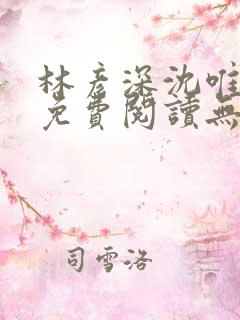 林彥深沈唯
免費閱讀無
司雪洛